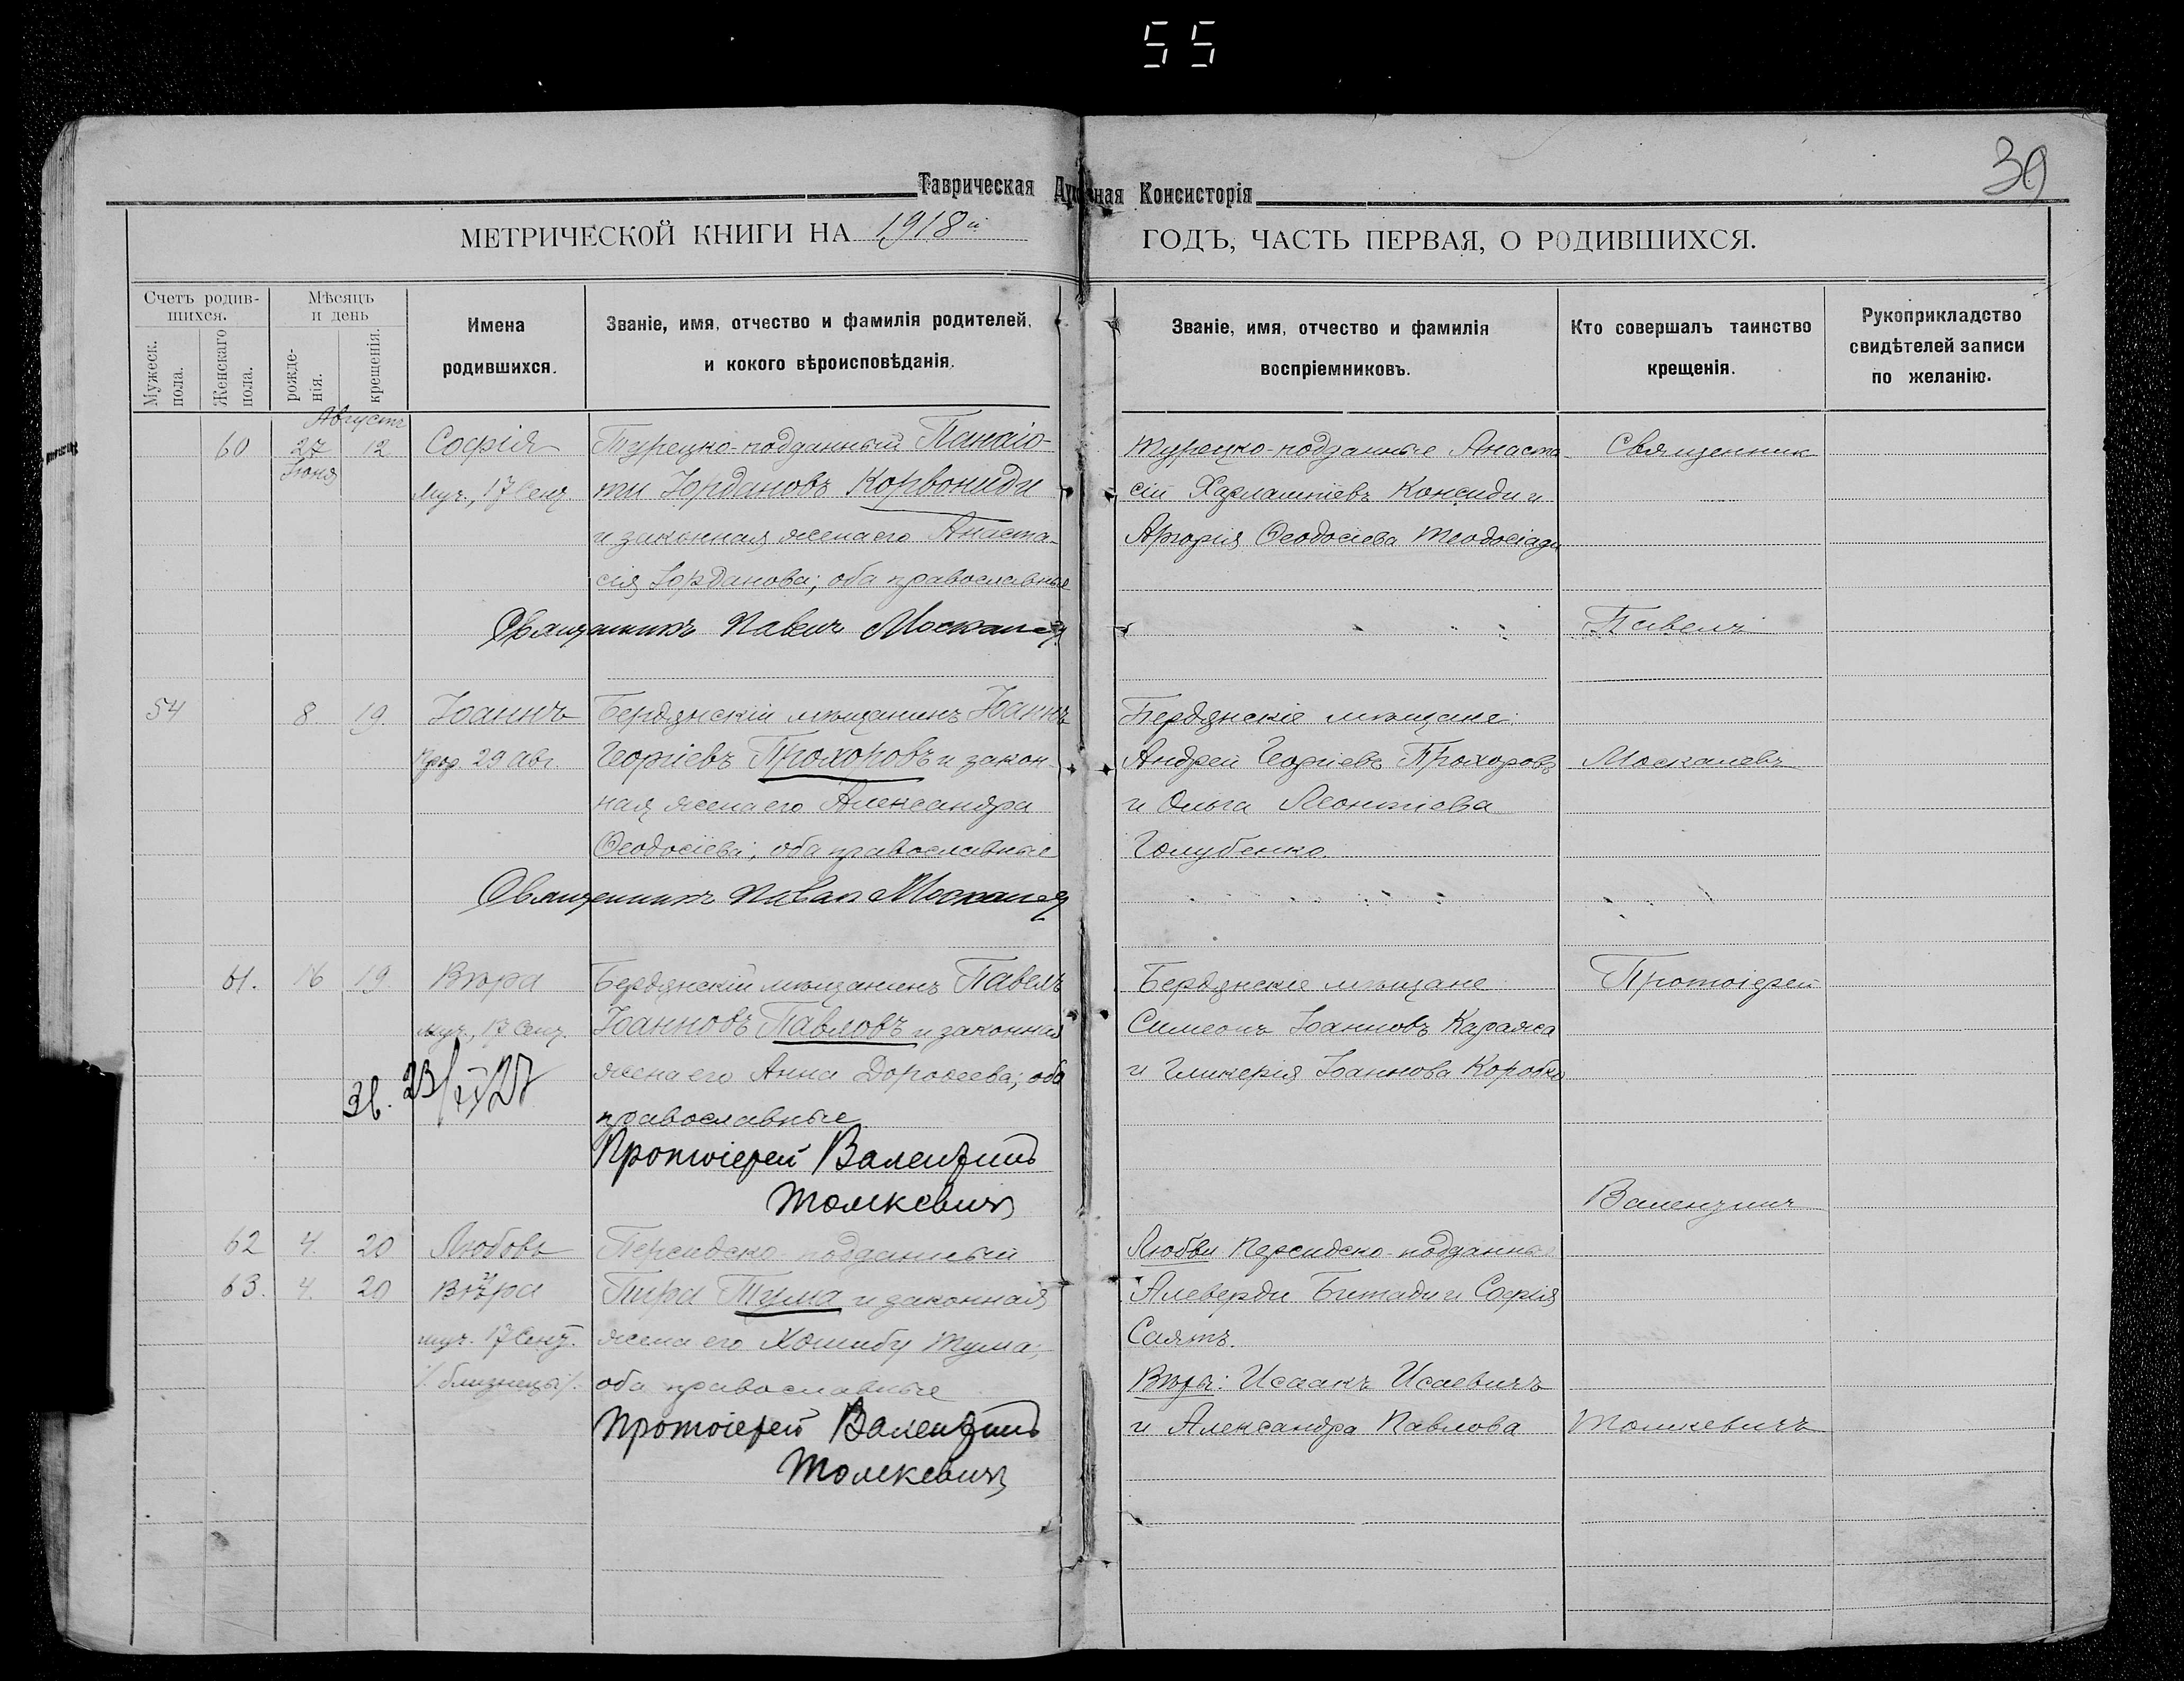 55
39
Таврическая Духовная Консисторія
МЕТРИЧЕСКОЙ КНИГИ НА 1918й ГОДЪ, ЧАСТЬ ПЕРВАЯ, О РОДИВШИХСЯ.
Счетъ родив-
шихся.
Мужеск.
пола.
Женскаго
пола.
Мѣсяцъ
и день
рожде-
нія.
крещенія.
Имена
родившихся.
Званіе, имя, отчество и фамилія родителей,
и кокого вѣроисповѣданія.
Званіе, имя, отчество и фамилія
воспріемниковъ.
Кто совершалъ таинство
крещенія.
Рукоприкладство
свидѣтелей записи
по желанію.
Августъ
60 27 12 Софія
Іюня
муч., 17 Сент
Турецко-подданный Панаіо-
ти Іордановъ Корвониди
и законная жена его Анаста-
сія Іорданова; оба православные
Священникъ Павелъ Москалев
Турецко-подданные Анаста-
сій Харлампіевъ Консиди и
Аргорія Ѳеодосіева Теодосіади
Священник
Павелъ
54 8 19. Іоаннъ
Прор. 29 Авг.
Бердянскій мѣщанинъ Іоаннъ
Георгіевъ Прохоровъ и закон-
ная жена его Александра
Ѳеодосіева; оба православные
Священникъ Павел Москалев
Бердянскіе мѣщане:
Андрей Георгіевъ Прохоровъ
и Ольга Леонтіева
Голубенко.
Москалевъ
61. 16 19 Вѣра
муч., 17 Сент.
Зв. 23/IX 27
Бердянскій мѣщанинъ Павелъ
Іоанновъ Павловъ и законная
жена его Анна Дороѳеева; оба
православные
Протоіерей Валентинъ
Томкевичъ
Бердянскіе мѣщане
Симеонъ Іоанновъ Караяса
и Гликерія Іоаннова Коробко
Протоіерей
Валентинъ
62 4. 20 Любовь
63. 4. 20 Вѣра
муч. 17 Сент.
/. близнецы/.
Персидско-подданный
Пира Тума и законная
жена его Хошибу Тума;
оба православные
Протоіерей Валентинъ
Томкевичъ
Любви Персидско-подданные
Алеверди Битади и Софія
Саятъ.
Вѣры: Исаакъ Исаевичъ
и Александра Павлова
Томкевичъ